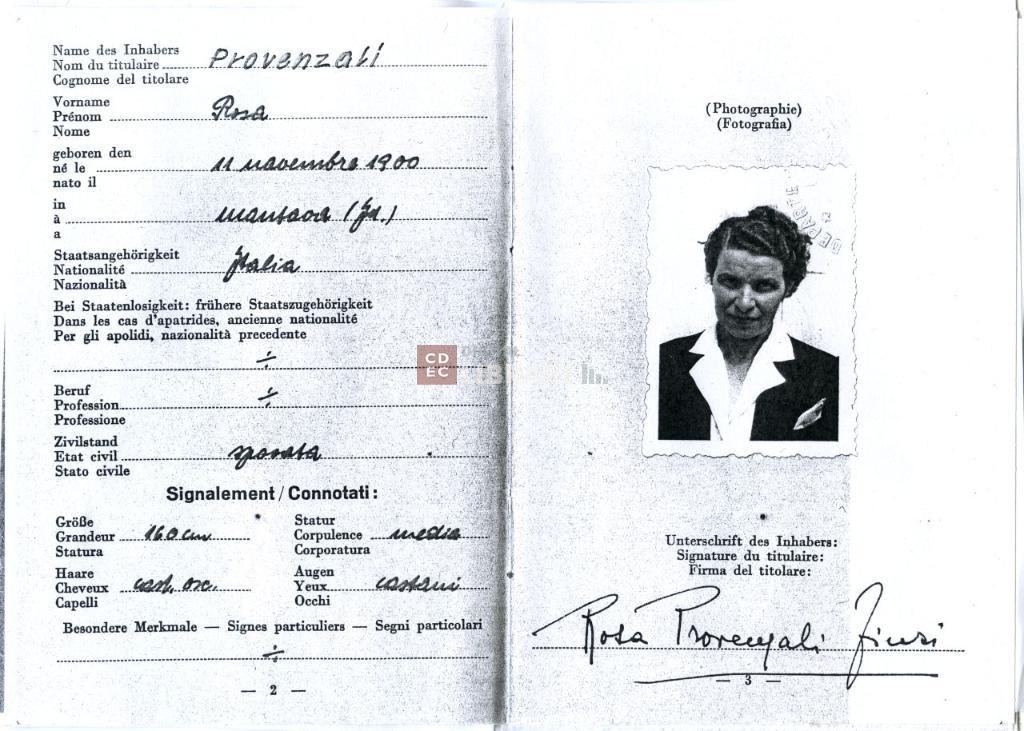 Name des Inhabers
Nom du titulaire Provenzali
Cognome del titolare
Vorname
Prénom Rosa
Nome
geboren den
né le 11 novembre 1900
nato il
in
à Mantova (It.)
a
Staatsangehörigkeit
Nationalité Italia
Nazionalità
Bei Staatenlosigkeit: frühere Staatszugehörigkeit
Dans les cas d'apatrides, ancienne nationalité
Per gli apolidi, nazionalità precedente
÷
Beruf
Profession ÷
Professione
Zivilstand
Etat civil sposata
Stato civile
Signalement / Connotati:
Größe
Grandeur 160 cm
Statura
Statur
Corpulence media
Corporatura
Haare
Cheveux cast. osc.
Capelli
Augen
Yeux castani
Occhi
Besondere Merkmale — Signes particuliers — Segni particolari
÷
— 2 —
(Photographie)
(Fotografia)
CD
EC
Unterschrift des Inhabers:
Signature du titulaire:
Firma del titolare:
Rosa Provenzali
— 3 —